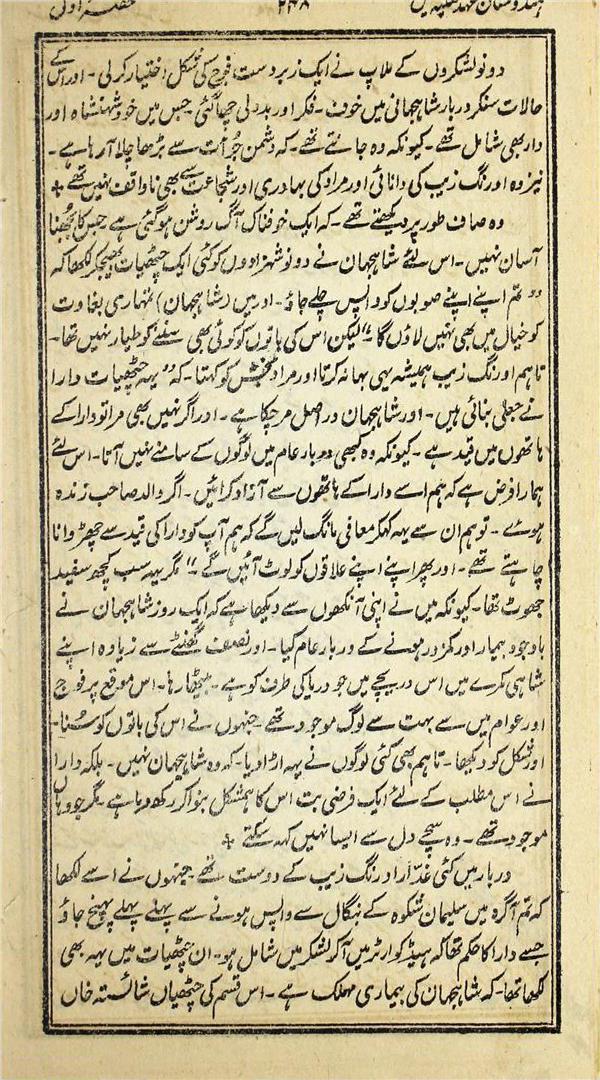 ہندوستان عہد مغلیہ میں ۲۴۸ حصہ اول
دونو لشکروں کے ملاپ نے ایک زبردست فوج کی شکل اختیار کر لی۔ اور اس کے
حالات سنکر دربار شاہجہانی میں خوف۔ فکر اور بددلی چھا گئی جس میں خود شہنشاہ اور
دارا بھی شامل تھے۔ کیونکہ وہ جانتے تھے۔ کہ دشمن جرأت سے بڑھا چلا آ رہا ہے۔
نیز وہ اورنگ زیب کی دانائی اور مراد کی بہادری اور شجاعت سے بھی ناواقف نہیں تھے +
وہ صاف طور پر دیکھتے تھے۔ کہ ایک خوفناک آگ روشن ہو گئی ہے جس کا بجھنا
آسان نہیں۔ اس لئے شاہجہان نے دونو شہزادوں کو کئی ایک چٹھیات بھیجکر لکھا کہ
”تم اپنے اپنے صوبوں کو واپس چلے جاؤ۔ اور میں (شاہجہان) تمہاری بغاوت
کو خیال میں بھی نہیں لاؤں گا“ لیکن اس کی باتوں کو کوئی بھی سننے کو طیار نہیں تھا۔
تاہم اورنگ زیب ہمیشہ یہی بہانہ کرتا اور مراد بخش کو کہتا۔ کہ ”یہہ چٹھیات دارا
نے جعلی بنائی ہیں۔ اور شاہجہان دراصل مر چکا ہے۔ اور اگر نہیں بھی مرا تو دارا کے
ہاتھوں میں قید ہے۔ کیونکہ وہ کبھی دربار عام میں لوگوں کے سامنے نہیں آتا۔ اس لئے
ہمارا فرض ہے کہ ہم اسے دارا کے ہاتھوں سے آزاد کرائیں۔ اگر والد صاحب زندہ
ہوئے۔ تو ہم ان سے یہہ کہکر معافی مانگ لیں گے کہ ہم آپ کو دارا کی قید سے چھڑوانا
چاہتے تھے۔ اور پھر اپنے اپنے علاقوں کو لوٹ آئیں گے“ مگر یہہ سب کچھ سفید
جھوٹ تھا۔ کیونکہ میں نے اپنی آنکھوں سے دیکھا ہے کہ ایک روز شاہجہان نے
باوجود بیمار اور کمزور ہونے کے دربار عام کیا۔ اور نصف گھنٹے سے زیادہ اپنے
شاہی کمرے میں اس دریچے میں جو دریا کی طرف کو ہے۔ بیٹھا رہا۔ اس موقع پر فوج
اور عوام میں سے بہت سے لوگ موجود تھے۔ جنہوں نے اس کی باتوں کو سنا۔
اور شکل کو دیکھا۔ تاہم بھی کئی لوگوں نے یہہ اڑا دیا۔ کہ وہ شاہجہان نہیں۔ بلکہ دارا
نے اس مطلب کے لئے ایک فرضی بت اس کا ہمشکل بنوا کر رکھ دیا ہے۔ مگر جو وہاں
موجود تھے۔ وہ سچے دل سے ایسا نہیں کہہ سکتے +
دربار میں کئی غدار اورنگ زیب کے دوست تھے۔ جنہوں نے اسے لکھا
کہ تم آگرہ میں سلیمان شکوہ کے بنگال سے واپس ہونے سے پہلے پہلے پہنچ جاؤ
جسے دارا کا حکم تھا کہ ہیڈ کوارٹر میں آکر لشکر میں شامل ہو۔ ان چٹھیات میں یہہ بھی
لکھا تھا۔ کہ شاہجہان کی بیماری مہلک ہے۔ اس قسم کی چٹھیاں شائستہ خاں